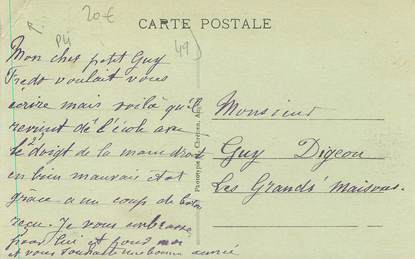 20€
P4
49
CARTE POSTALE
Mon cher petit Guy
Fredo voulait vous
écrire mais voilà qu'il
revient de l'école avec
le doigt de la main droite
en bien mauvais état
grâce a un coup de baton
reçu. Je vous embrasse
pour lui et pour moi
et vous souhaite une bonne année
Monsieur
Guy Digeon
Les Grands Maisons